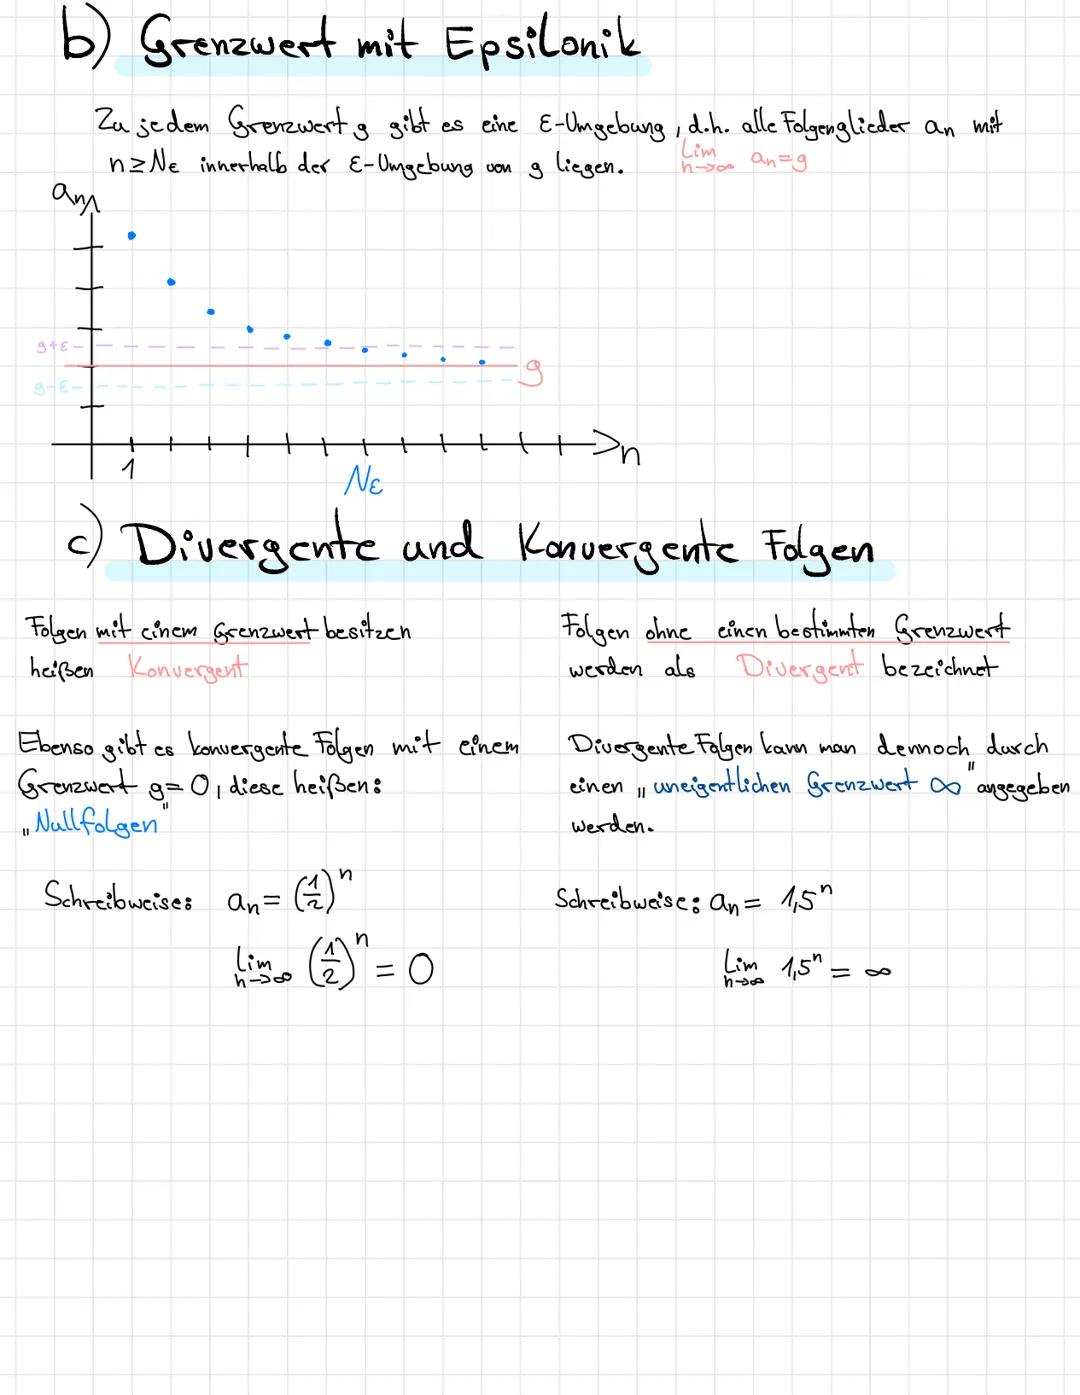 b) Grenzwert mit Epsilonik
Zu jedem Grenzwert g gibt es eine ε-Umgebung, d.h. alle Folgenglieder an mit
n≥Nε innerhalb der ε-Umgebung von g liegen. lim n→∞ an=g
an
g+ε
g-ε
g
1
n
Nε
c) Divergente und Konvergente Folgen
Folgen mit einem Grenzwert besitzen
heißen Konvergent
Ebenso gibt es konvergente Folgen mit einem
Grenzwert g=0, diese heißen:
„Nullfolgen"
Schreibweise: an=(1/2)^n
lim n→∞ (1/2)^n = 0
Folgen ohne einen bestimmten Grenzwert
werden als Divergent bezeichnet
Divergente Folgen kann man dennoch durch
einen „uneigentlichen Grenzwert ∞" angegeben
werden.
Schreibweise: an= 1,5^n
lim n→∞ 1,5^n = ∞